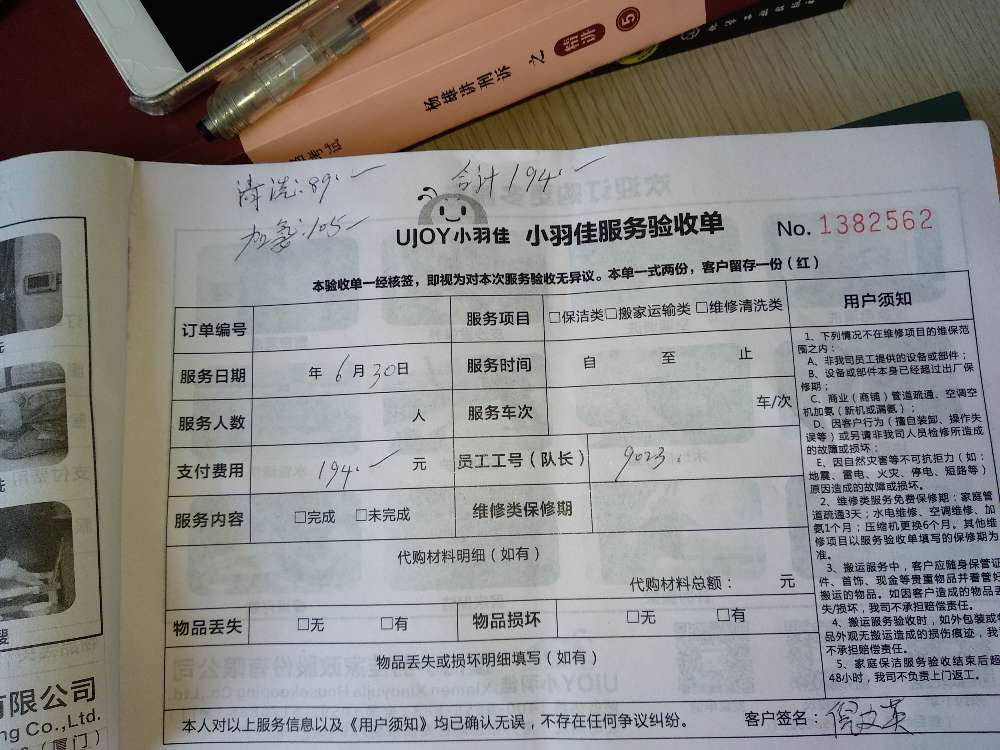 杨雄讲刑诉 之 精讲 ⑤
清洗:89.
合计194.
加氨:105
UJOY小羽佳 小羽佳服务验收单 No. 1382562
本验收单一经核签，即视为对本次服务验收无异议。本单一式两份，客户留存一份（红）
订单编号 服务项目 □保洁类□搬家运输类 □维修清洗类
服务日期 年 6 月 30 日 服务时间 自 至 止
服务人数 人 服务车次 车/次
支付费用 194. 元 员工工号（队长） 9023.
服务内容 □完成 □未完成 维修类保修期
代购材料明细（如有）
代购材料总额： 元
物品丢失 □无 □有 物品损坏 □无 □有
物品丢失或损坏明细填写（如有）
本人对以上服务信息以及《用户须知》均已确认无误，不存在任何争议纠纷。 客户签名：
用户须知
1、下列情况不在维修项目的维保范
围之内：
A、非我司员工提供的设备或部件；
B、设备或部件本身已经超过出厂保
修期；
C、商业（商铺）管道疏通、空调空
机加氨（新机或漏氨）；
D、因客户行为（擅自装卸、操作失
误等）或另请非我司人员检修所造成
的故障或损坏；
E、因自然灾害等不可抗拒力（如：
地震、雷电、火灾、停电、短路等）
原因造成的故障或损坏。
2、维修类服务免费保修期：家庭管
道疏通3天；水电维修、空调维修、加
氨1个月；压缩机更换6个月。其他维
修项目以服务验收单填写的保修期为
准。
3、搬运服务中，客户应随身保管证
件、首饰、现金等贵重物品并看管好
搬运的物品。如因客户造成的物品丢
失/损坏，我司不承担赔偿责任。
4、搬运服务验收时，如外包装或物
品外观无搬运造成的损伤痕迹，我司
不承担赔偿责任。
5、家庭保洁服务验收结束后超
48小时，我司不负责上门返工。
有限公司
ng Co.,Ltd.
（厦门）